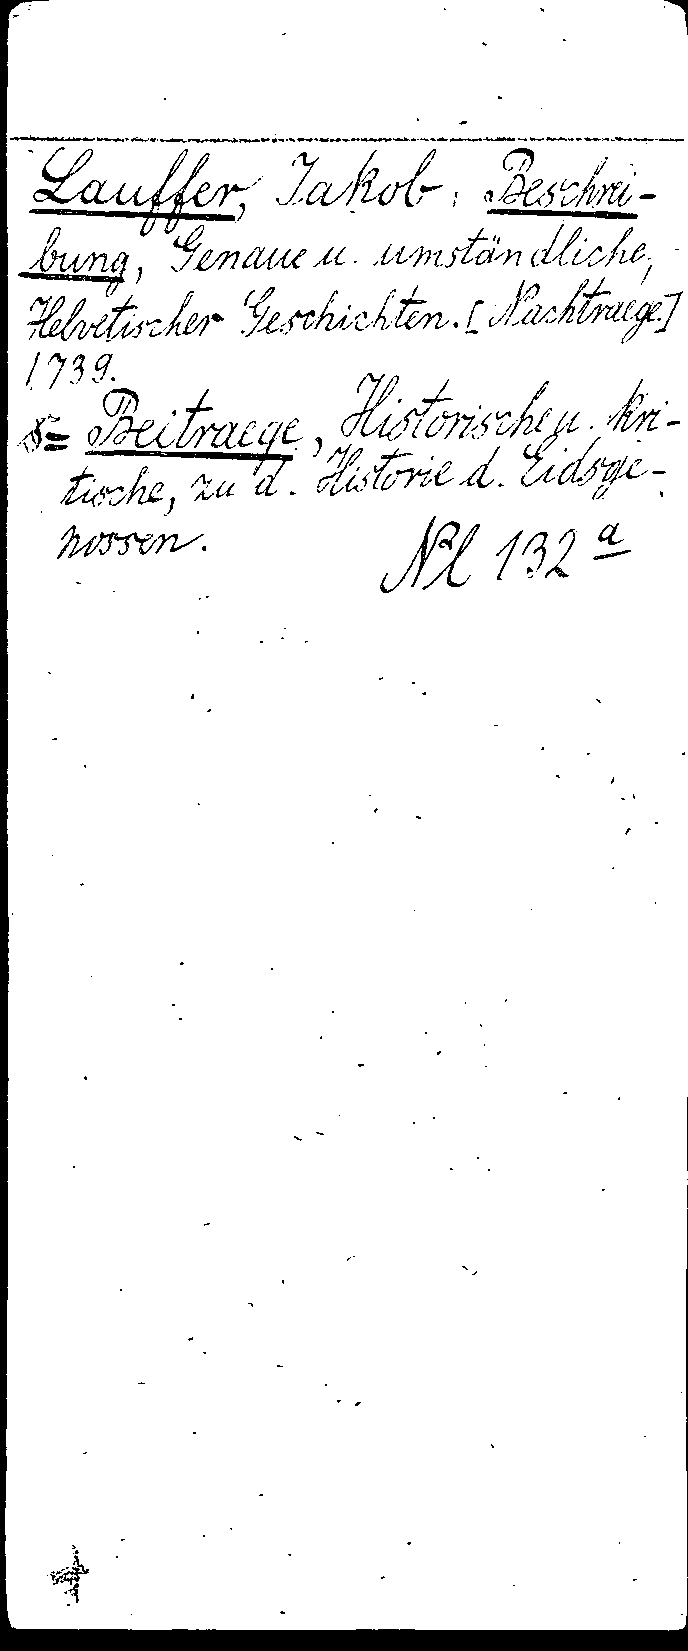 Lauffer, Jakob: Beschrei-
bung, Genaue u. umständliche,
Helvetischer Geschichten. [Nachtraege.]
1739.
s= Beitraege, Historische u. kri-
tische, zu d. Historie d. Eidsge-
nossen.
Nl 132 a